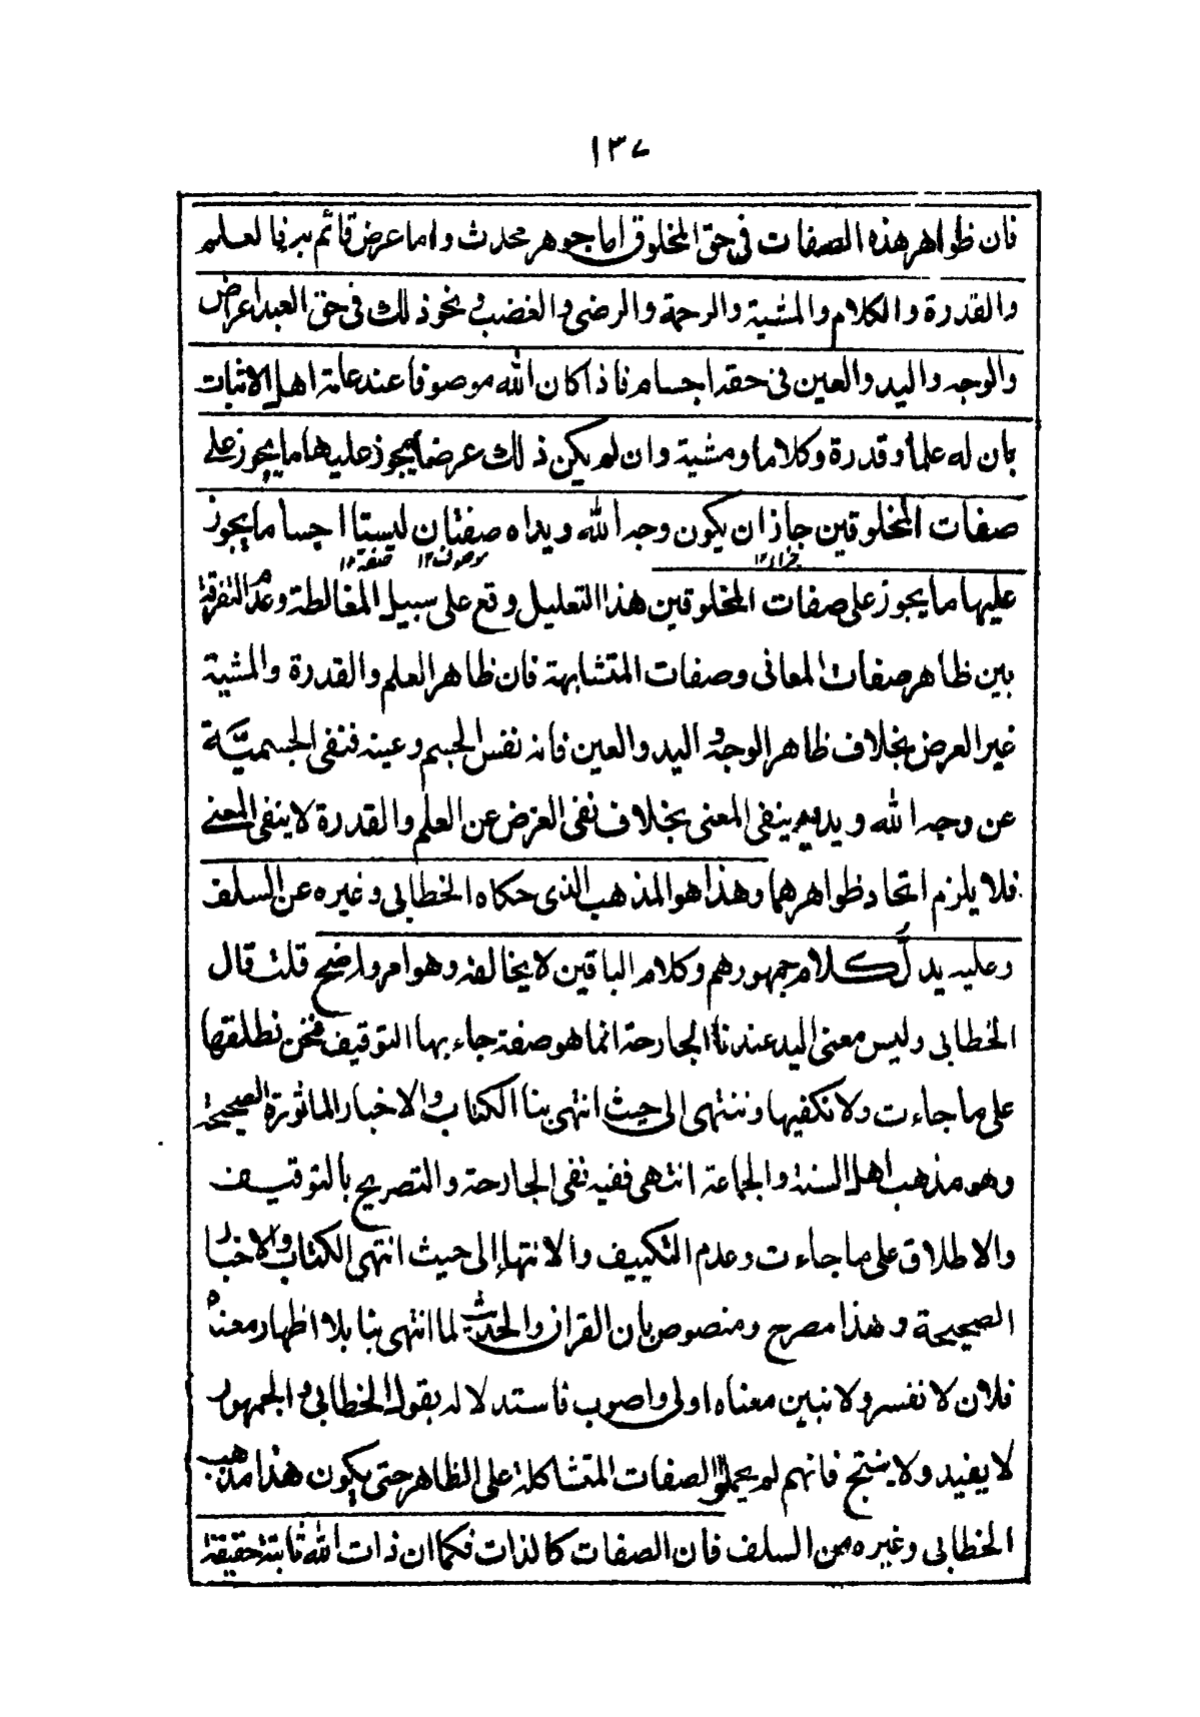 ١٣٧
فان ظواهر هذه الصفات في حق المخلوق اما جوهر محدث واما عرض قائم به فالعلم
والقدرة والكلام والمشية والرحمة والرضى والغضب ونحو ذلك في حق العبد اعراض
والوجه واليد والعين في حقه اجسام فاذا كان الله موصوفا عند عامة اهل الاثبات
بان له علما وقدرة وكلاما ومشية وان لم يكن ذلك عرضا يجوز عليها ما يجوز على
صفات المخلوقين جاز ان يكون وجه الله ويداه صفتان ليستا اجساما يجوز
جزاء١٢ موصوف١٢ صفة١٢
عليها ما يجوز على صفات المخلوقين هذا التعليل وقع على سبيل المغالطة وعدم التفرقة
بين ظاهر صفات المعاني وصفات المتشابهة فان ظاهر العلم والقدرة والمشية
غير العرض بخلاف ظاهر الوجه واليد والعين فانه نفس الجسم وعينه فنفى الجسميّة
عن وجه الله ويديه ينفى المعنى بخلاف نفى العرض عن العلم والقدرة لا ينفى المعنى
فلا يلزم اتحاد ظواهرهما وهذا هو المذهب الذى حكاه الخطابي وغيره عن السلف
وعليه يدلّ كلام جمهورهم وكلام الباقين لا يخالفه وهو امر واضح قلت قال
الخطابي وليس معنى اليد عندنا الجارحة انما هو صفة جاء بها التوقيف فنحن نطلقها
على ما جاءت ولا نكفيها وننتهى الى حيث انتهى بنا الكتاب والاخبار الماثورة الصحيحة
وهو مذهب اهل السنة والجماعة انتهى ففيه نفى الجارحة والتصريح بالتوقيف
والاطلاق على ما جاءت وعدم التكييف والانتهاء الى حيث انتهى الكتاب والاخبار
الصحيحة وهذا مصرح ومنصوص بان القران والحديث لما انتهى بنا بلا اظهار معناه
فلان لا نفسر ولا نبين معناه اولى واصوب فاستدلاله بقول الخطابي والجمهور
لا يفيد ولا ينتج فانهم لم يحملوا الصفات المتشاكلة على الظاهر حتى يكون هذا مذهب
الخطابي وغيره من السلف فان الصفات كالذات فكما ان ذات الله ثابتة حقيقة